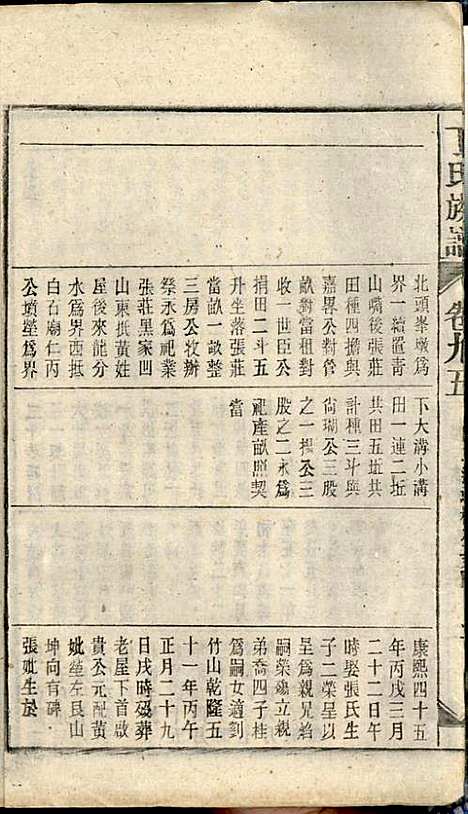 丁氏族譜
卷九
五
北頭峯墩爲
界一續置青
山嘴後張莊
田種四擔與
嘉畧公對管
畝對當租對
收一世臣公
捐田二斗五
升坐落張莊
當畝一畝整
三房公妆辦
祭永爲祀業
張莊黑家凹
山東抵黃姓
屋後來龍分
水爲界西抵
白石廟仁丙
公墳塋爲界
下大溝小溝
田一連二坵
共田五坵共
計種三斗與
尙瑚公三股
之一揆公三
股之二永爲
祀產畝照契
當
康熙四十五
年丙戌三月
二十二日午
時娶張氏生
子二榮呈以
呈爲親兄焰
嗣榮殤立親
弟喬四子桂
爲嗣女適劉
竹山乾隆五
十一年丙午
正月二十九
日戌時殁葬
老屋下首啟
貴公元配黃
妣塋左艮山
坤向有碑
張妣生於